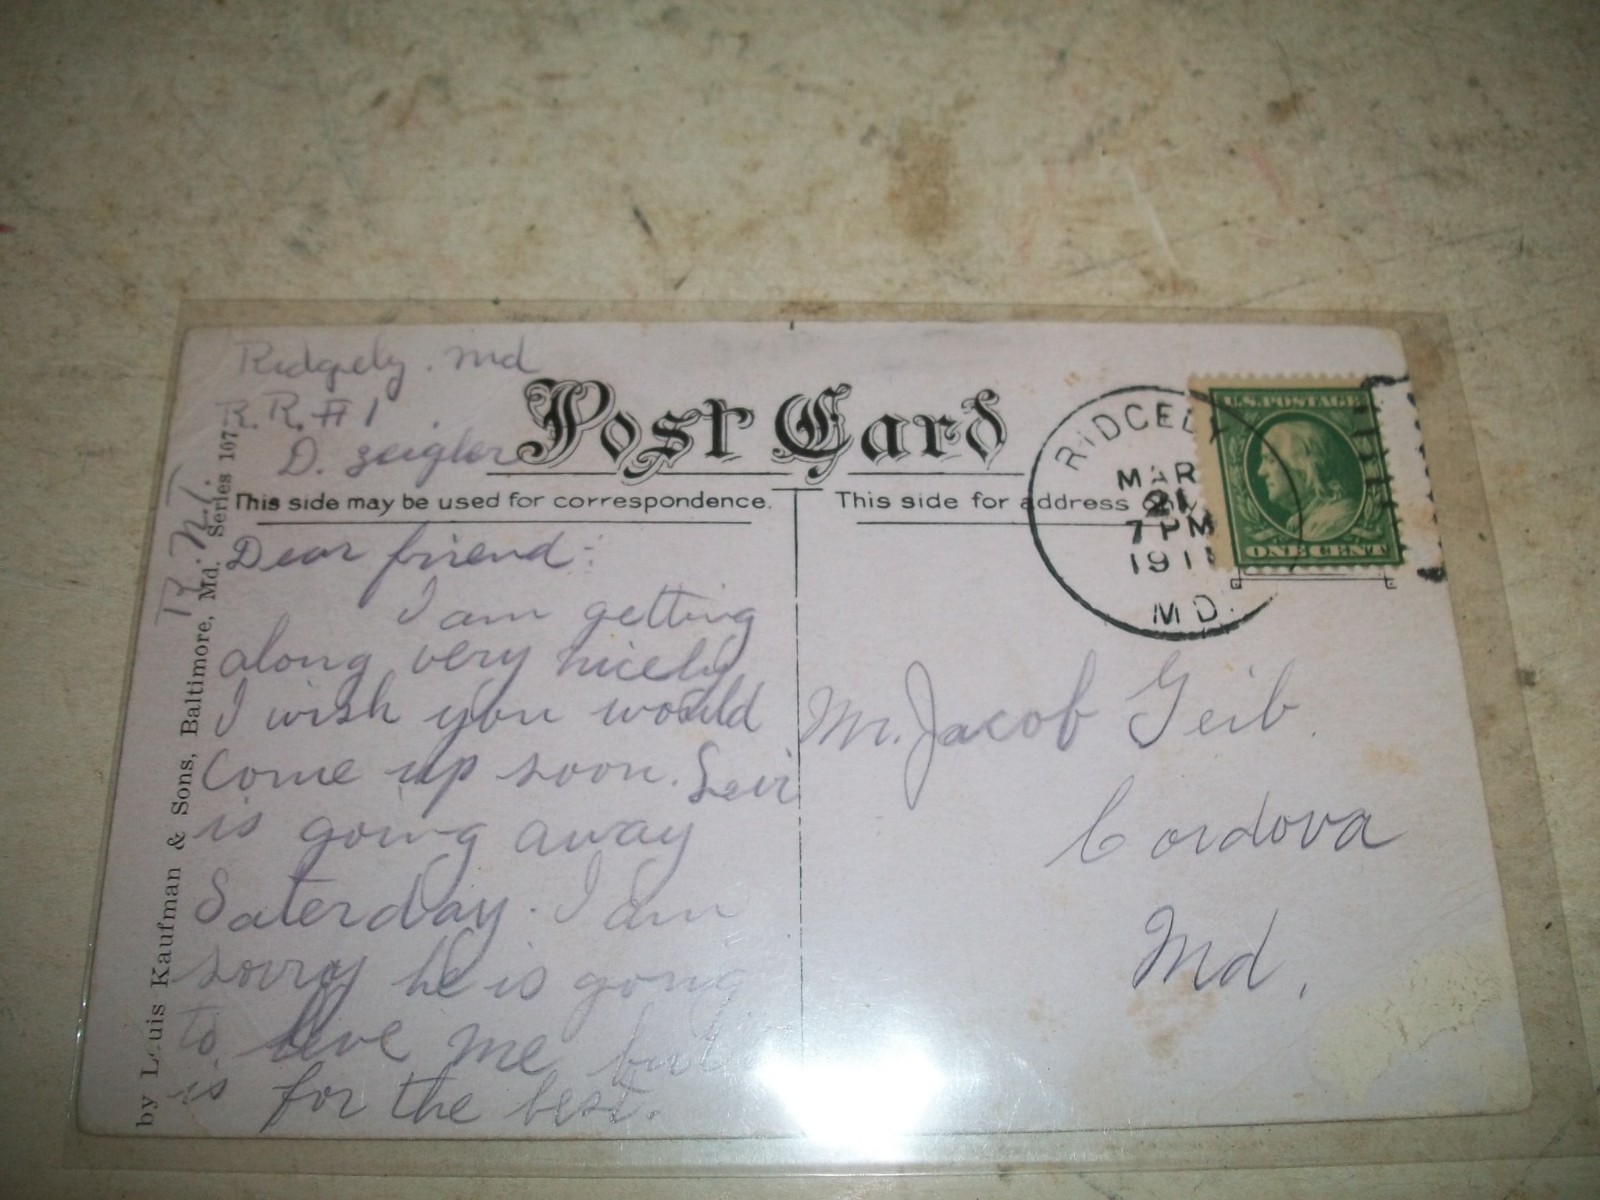 Ridgely. Md
R.R.#1
D. Zeigler
Post Card
This side may be used for correspondence.
This side for address only
RIDGELY
MAR
21
7 PM
1911
MD.
U.S. POSTAGE
ONE CENT
Dear friend:
I am getting
along very nicely
I wish you would
Come up soon. Levi
is going away
Saterday. I am
sorry he is going
to leve me but
is for the best.
Mr. Jacob Geib.
Cordova
Md.
by Louis Kaufman & Sons, Baltimore, Md. Series 107